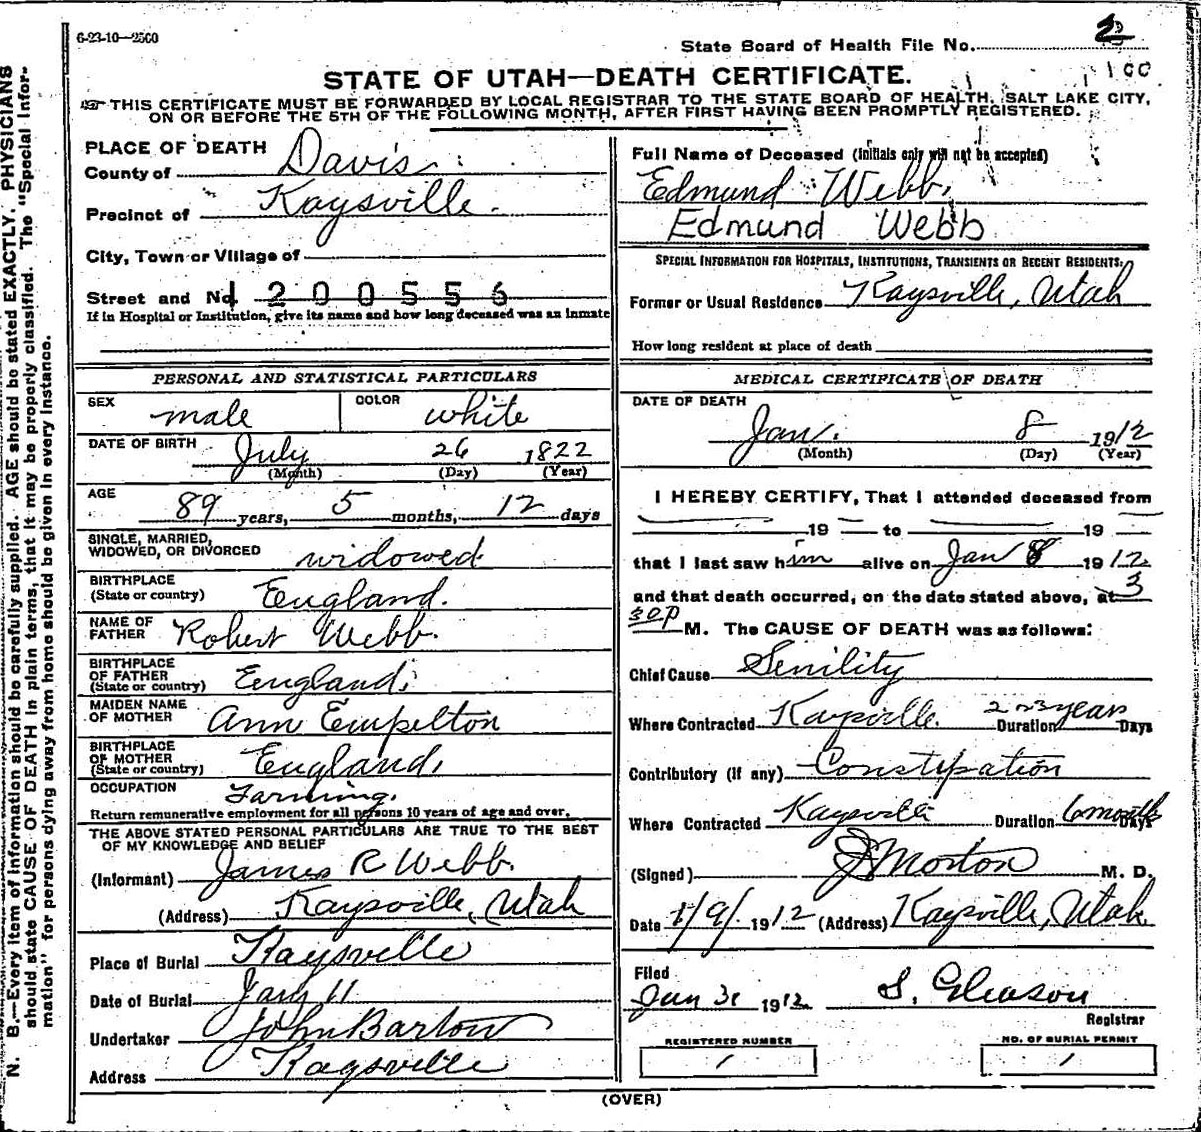 6-23-10—2500
State Board of Health File No. 2
100
STATE OF UTAH—DEATH CERTIFICATE.
THIS CERTIFICATE MUST BE FORWARDED BY LOCAL REGISTRAR TO THE STATE BOARD OF HEALTH, SALT LAKE CITY,
ON OR BEFORE THE 5TH OF THE FOLLOWING MONTH, AFTER FIRST HAVING BEEN PROMPTLY REGISTERED.
PLACE OF DEATH
County of Davis
Precinct of Kaysville.
City, Town or Village of
Street and No. 1200556
If in Hospital or Institution, give its name and how long deceased was an inmate
PERSONAL AND STATISTICAL PARTICULARS
SEX male COLOR white
DATE OF BIRTH July 26 1822
(Month) (Day) (Year)
AGE 89 years, 5 months, 12 days
SINGLE, MARRIED,
WIDOWED, OR DIVORCED widowed
BIRTHPLACE
(State or country) England.
NAME OF
FATHER Robert Webb.
BIRTHPLACE
OF FATHER
(State or country) England.
MAIDEN NAME
OF MOTHER Ann Empelton
BIRTHPLACE
OF MOTHER
(State or country) England.
OCCUPATION Farming.
Return remunerative employment for all persons 10 years of age and over.
THE ABOVE STATED PERSONAL PARTICULARS ARE TRUE TO THE BEST
OF MY KNOWLEDGE AND BELIEF
(Informant) James R Webb.
(Address) Kaysville, Utah
Place of Burial Kaysville
Date of Burial Jany 11
Undertaker John Barton
Address Kaysville
Full Name of Deceased (Initials only will not be accepted)
Edmund Webb.
Edmund Webb
SPECIAL INFORMATION FOR HOSPITALS, INSTITUTIONS, TRANSIENTS OR RECENT RESIDENTS.
Former or Usual Residence Kaysville, Utah
How long resident at place of death
MEDICAL CERTIFICATE OF DEATH
DATE OF DEATH
Jan. 8 1912
(Month) (Day) (Year)
I HEREBY CERTIFY, That I attended deceased from
19 — to 19 —
that I last saw him alive on Jan 8 1912
and that death occurred, on the date stated above, at 3
30 P M. The CAUSE OF DEATH was as follows:
Chief Cause Senility
Where Contracted Kaysville. Duration 2 or 3 years Days
Contributory (if any) Constipation
Where Contracted Kaysville Duration 6 months Days
(Signed) J Morton M. D.
Date 1/9/ 1912 (Address) Kaysville, Utah.
Filed
Jan 31 1912 S. Gleason
Registrar
REGISTERED NUMBER
1
NO. OF BURIAL PERMIT
1
(OVER)
N. B.—Every item of information should be carefully supplied. AGE should be stated EXACTLY. PHYSICIANS
should state CAUSE OF DEATH in plain terms, that it may be properly classified. The "Special Infor-
mation" for persons dying away from home should be given in every instance.